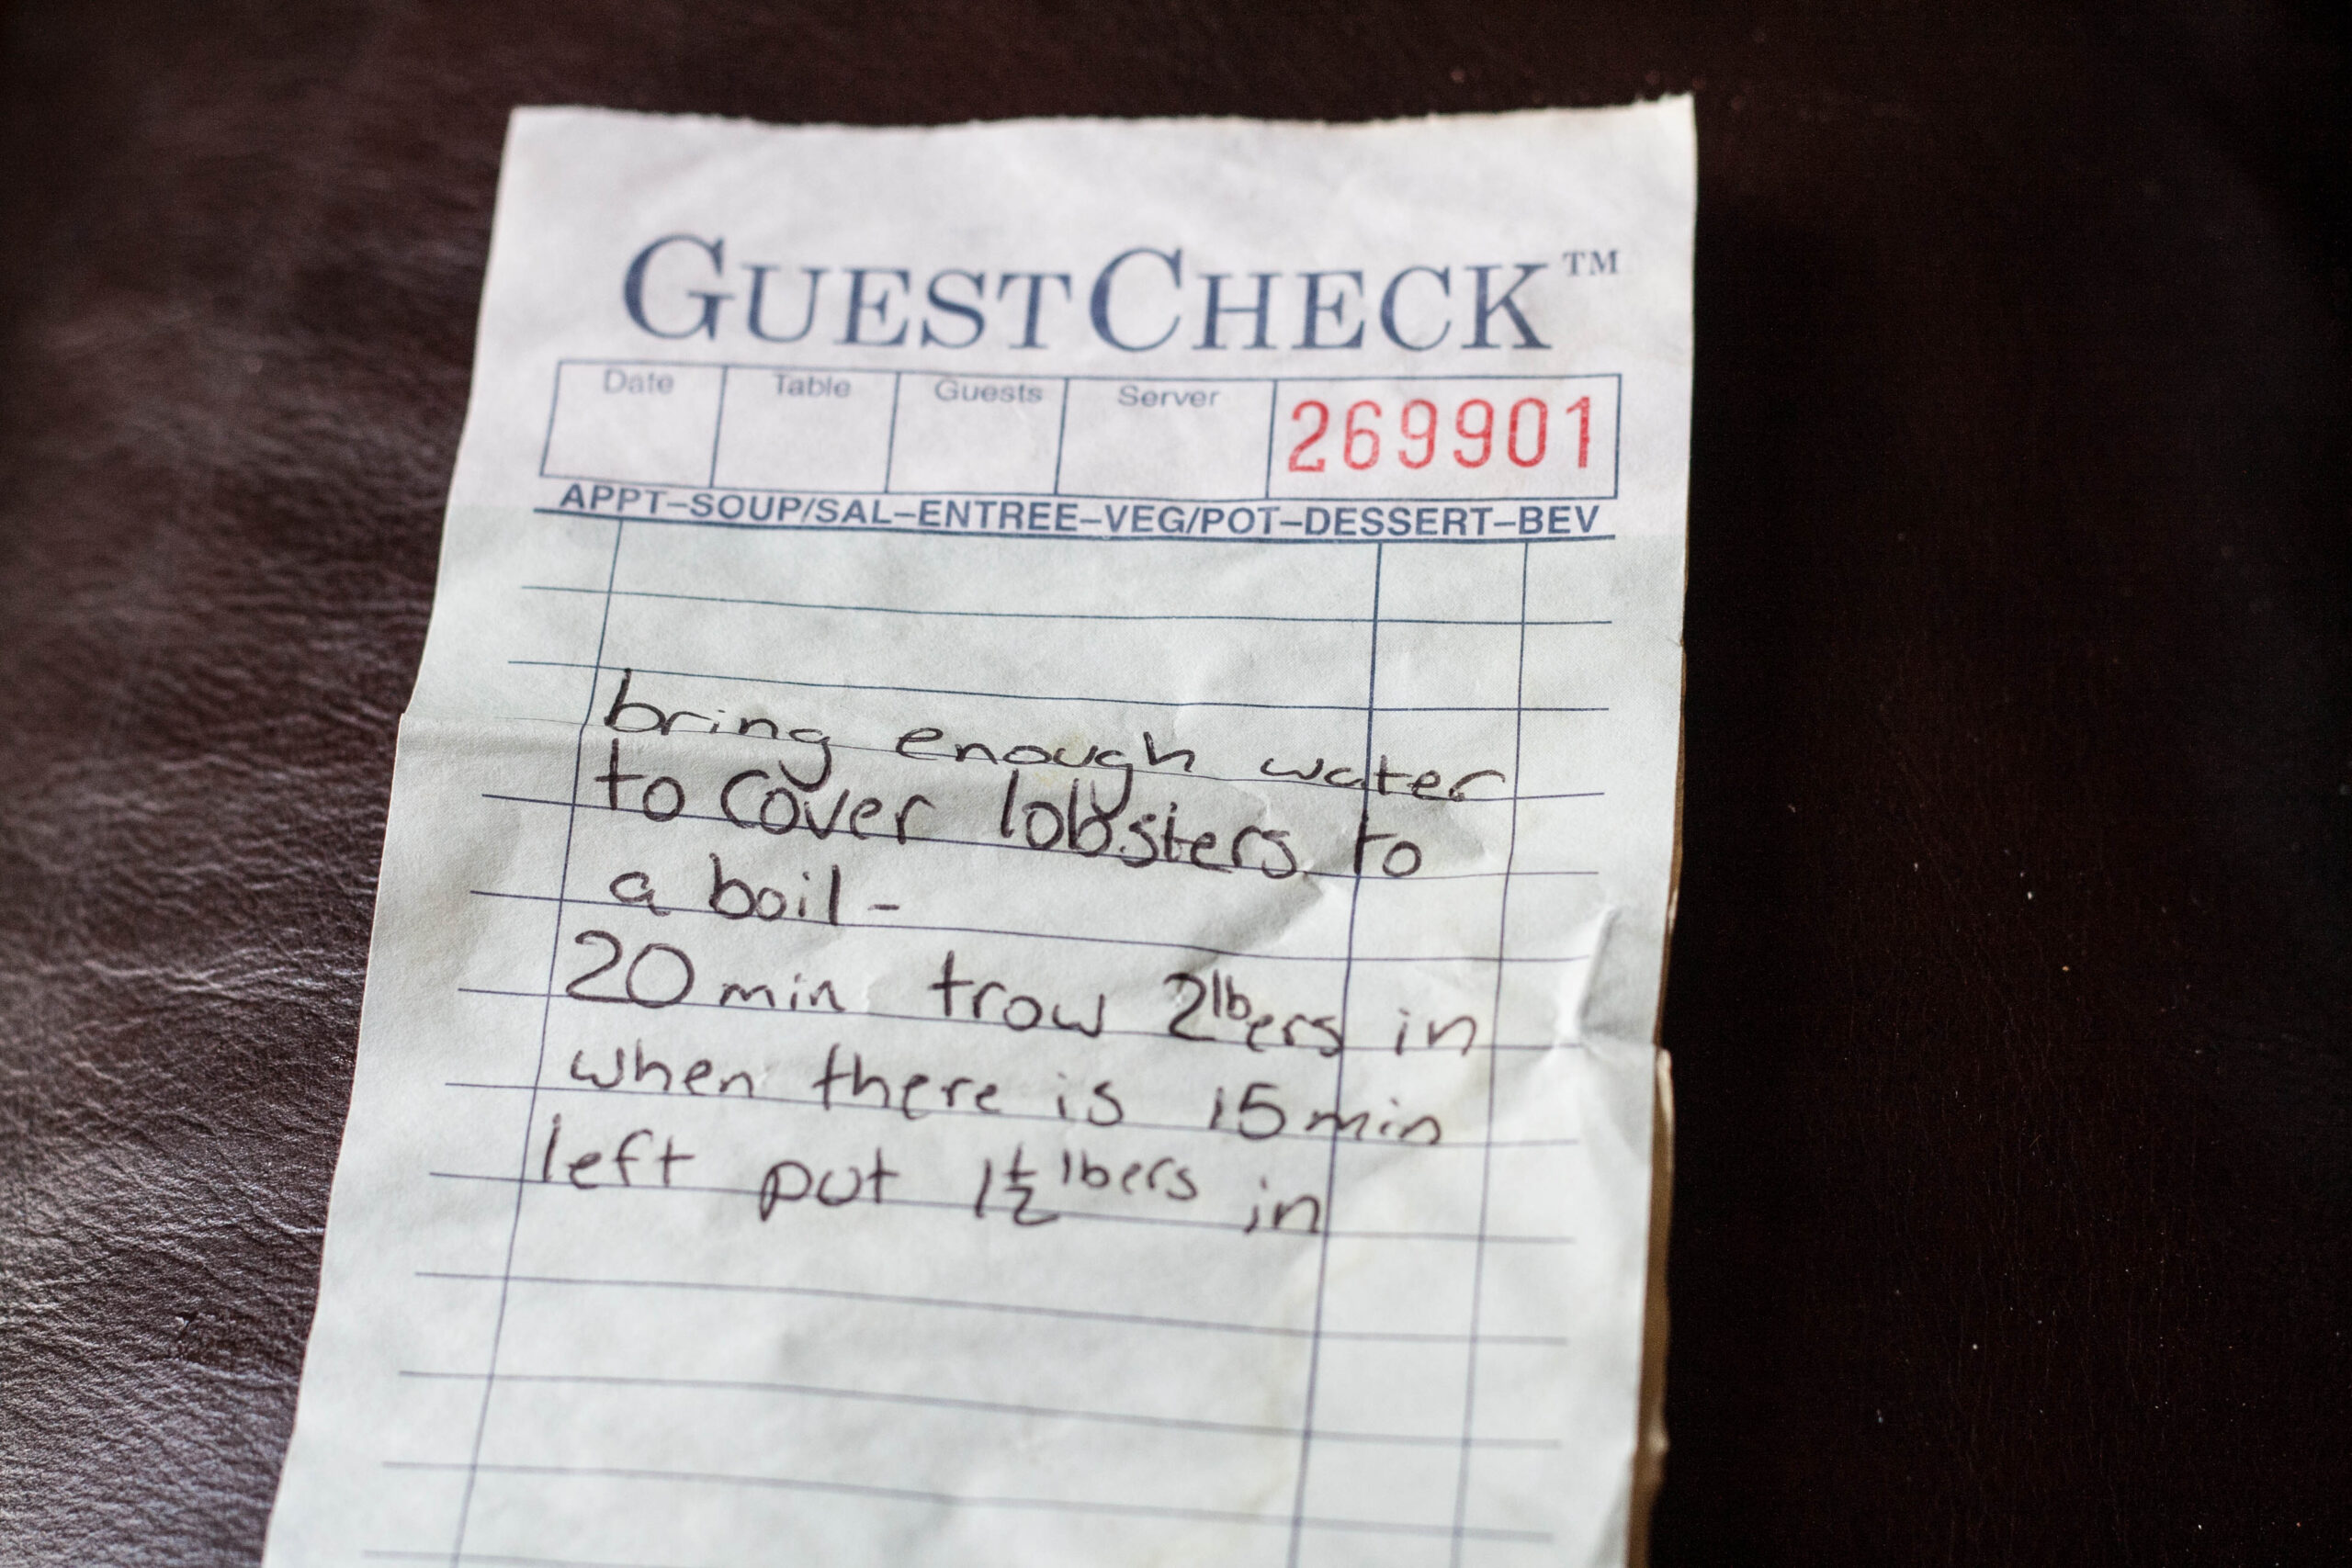 GUESTCHECK™
Date Table Guests Server 269901
APPT–SOUP/SAL–ENTREE–VEG/POT–DESSERT–BEV
bring enough water
to cover lobsters to
a boil -
20 min trow 2lbers in
when there is 15 min
left put 1½ lbers in